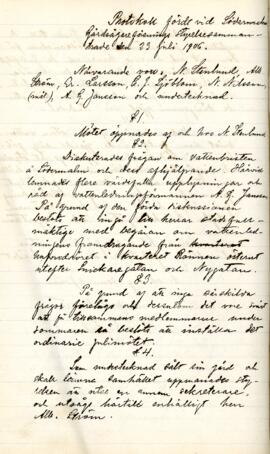 Protokoll fördt vid Södermalms
Gårdsägareförenings styrelsesamman-
träde den 23 Juli 1906.
Närvarande voro, N. Stenlund, Alb.
Ström, Or. Larsson, C. J. Sjöblom, N. Nilsson
A. G. Jansson och undertecknad.
§1.
Mötet öppnades af ordf. N. Stenlund
§2.
Diskuterades frågan om vattenbristen
å Södermalm och dess afhjälpande. Härvid
lemnades flere värdefulla upplysningar och
råd af vattenledningsförmannen A. G. Jansson
På grund af den förda diskussionen
beslöts att ingå till herrar stadsfull-
mäktige med begäran om vattenled-
ningens framdragande från
i kvarteret Rännen österut
utefter Snickaregatan och Nygatan.
§3.
På grund af att inga särskilda
frågor förelågo och dessutom det vore svårt
att få medlemmarne under
sommaren så beslöts att inställa det
ordinarie julimötet.
§4.
Som undertecknad sålt sin gård och
skall lämna samhället uppmanades sty-
relsen att utse en annan sekreterare,
och utsågs härtill enhälligt herr
Alb. Ström.